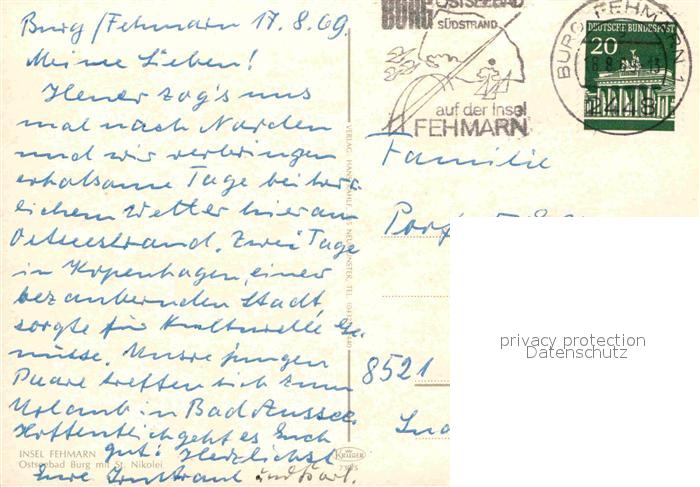 Burg/Fehmarn 17.8.69.
Meine Lieben!
Heuer zog's uns
mal nach Norden
und wir verbringen
erholsame Tage bei herr-
lichem Wetter hier am
Ostseestrand. Zwei Tage
in Kopenhagen, einer
bezaubernden Stadt,
sorgte für kulturelle Ge-
nüsse. Unsre jungen
Paare treffen sich zum
Urlaub in Bad Aussee.
Hoffentlich geht es Euch
gut! Herzlichst
Eure und
INSEL FEHMARN
Ostseebad Burg mit St. Nikolei
KRÜGER
VERLAG NEUMÜNSTER, TEL.
BURG OSTSEEBAD
SÜDSTRAND
auf der Insel
FEHMARN
BURG, FEHMARN 1
2448
DEUTSCHE BUNDESPOST
20
Familie
8521
privacy protection
Datenschutz